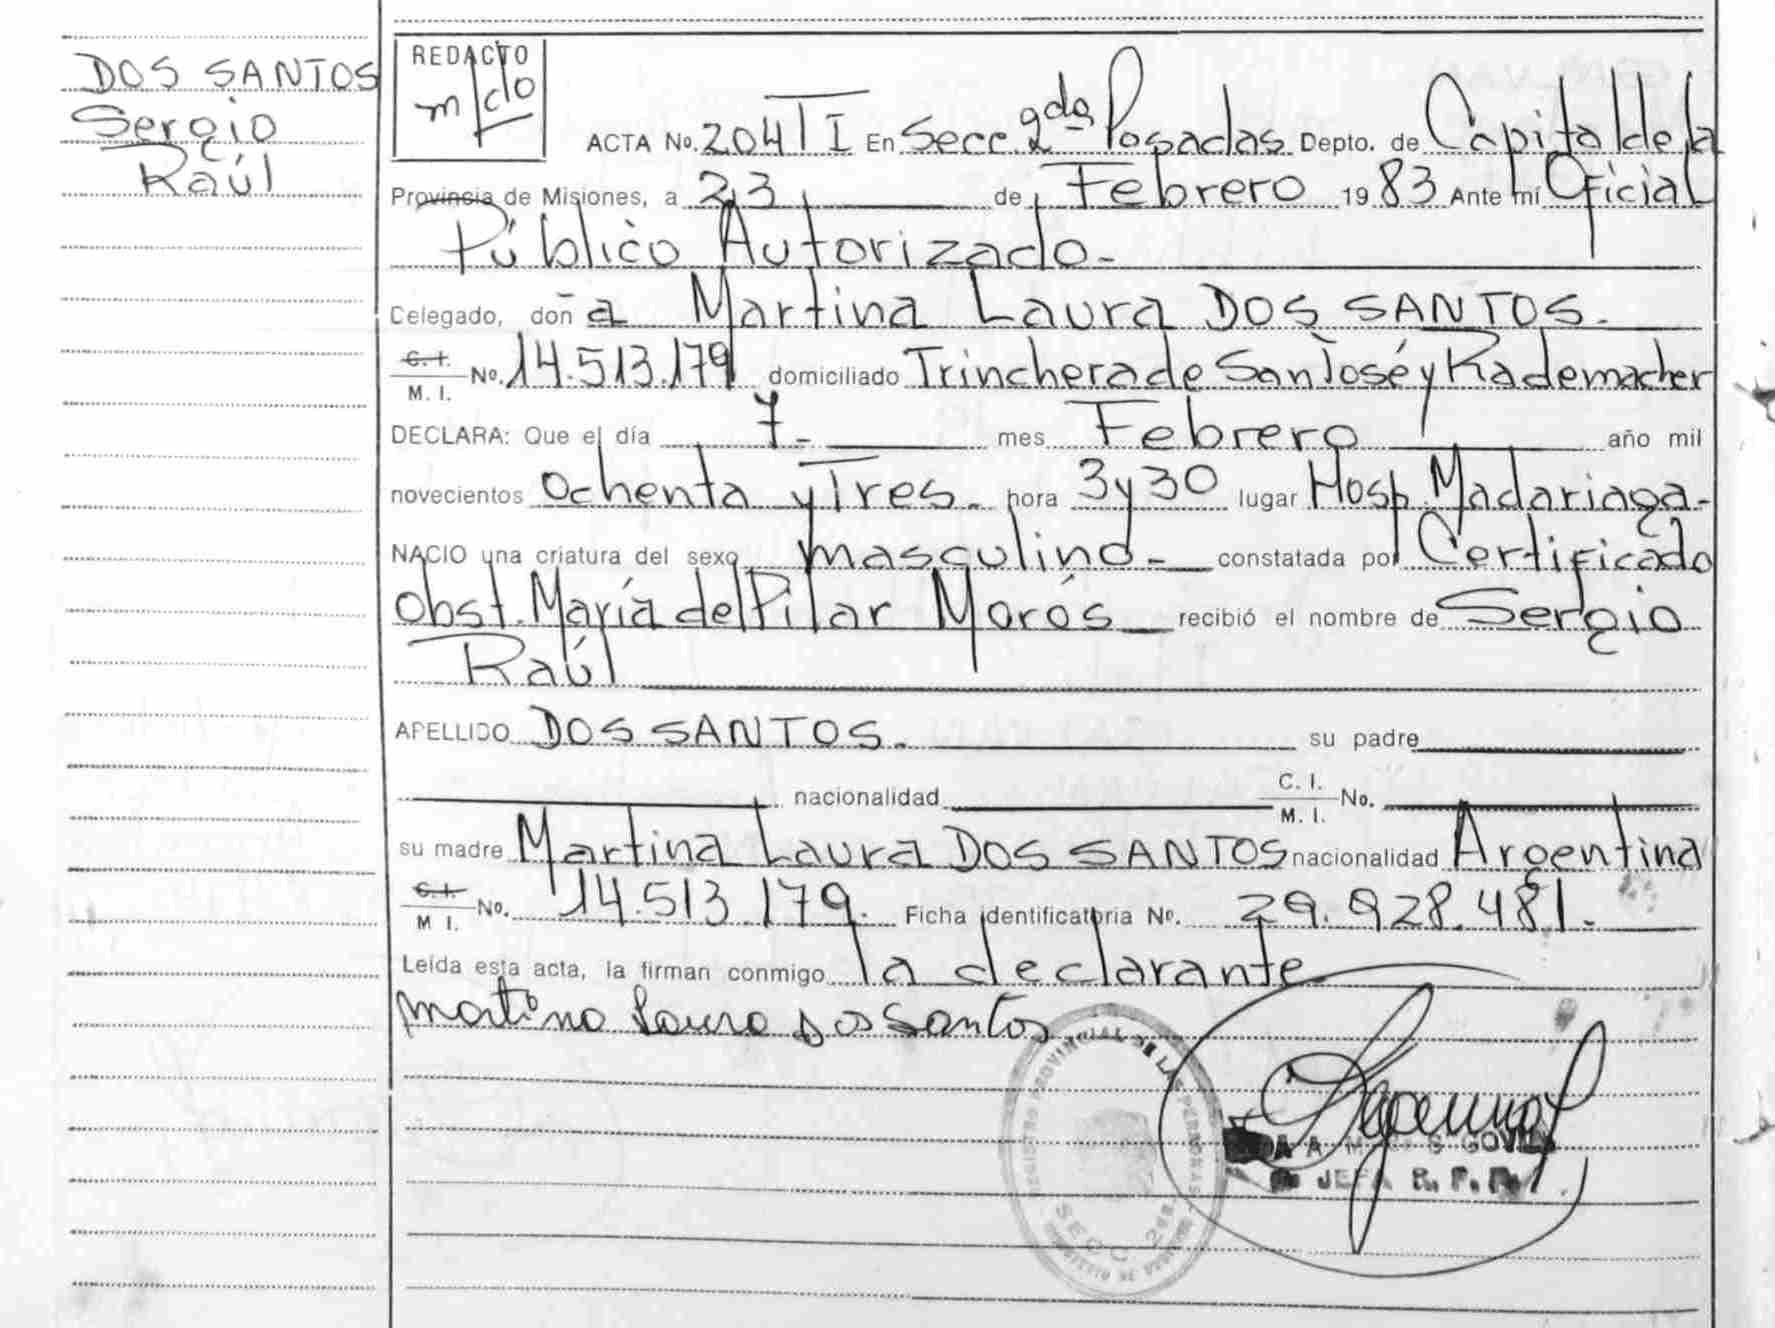 DOS SANTOS
Sergio
Raúl
REDACTO
ACTA No. 204 T I En Secc. 2da Posadas Depto. de Capital de la
Provincia de Misiones, a 23 de Febrero 1983 Ante mí Oficial
Público Autorizado.-
Celegado, doña Martina Laura DOS SANTOS.
C. I.
M. I. No. 14.513.179 domiciliado Trinchera de San José y Rademacher
DECLARA: Que el día 7.- mes Febrero año mil
novecientos ochenta y Tres.- hora 3 y 30 lugar Hosp. Madariaga-
NACIO una criatura del sexo masculino.- constatada por Certificado
Obst. María del Pilar Morós recibió el nombre de Sergio
Raúl
APELLIDO DOS SANTOS. su padre
nacionalidad C. I.
M. I. No.
su madre Martina Laura DOS SANTOS nacionalidad Argentina
C. I.
M I. No. 14.513.179. Ficha identificatoria No. 29.928.481.-
Leída esta acta, la firman conmigo la declarante
Martina Laura Dos Santos
REGISTRO PROVINCIAL DE LAS PERSONAS
SECC 2da
JEFA R. P. P.